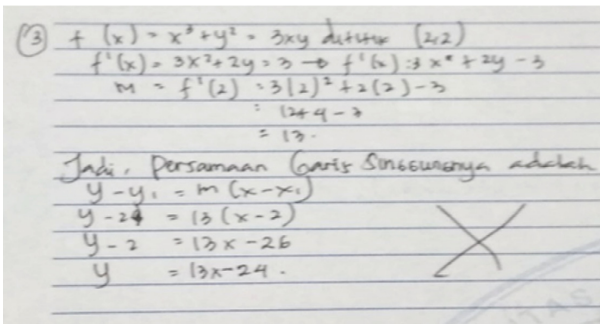 ③ f(x) = x³ + y² = 3xy dititik (2,2)
f'(x) = 3x² + 2y = 3 → f'(x) : 3x² + 2y - 3
m = f'(2) = 3(2)² + 2(2) - 3
= 12 + 4 - 3
= 13.
Jadi, Persamaan Garis Singgungnya adalah
y - y₁ = m (x - x₁)
y - 2 = 13 (x - 2)
y - 2 = 13x - 26
y = 13x - 24.